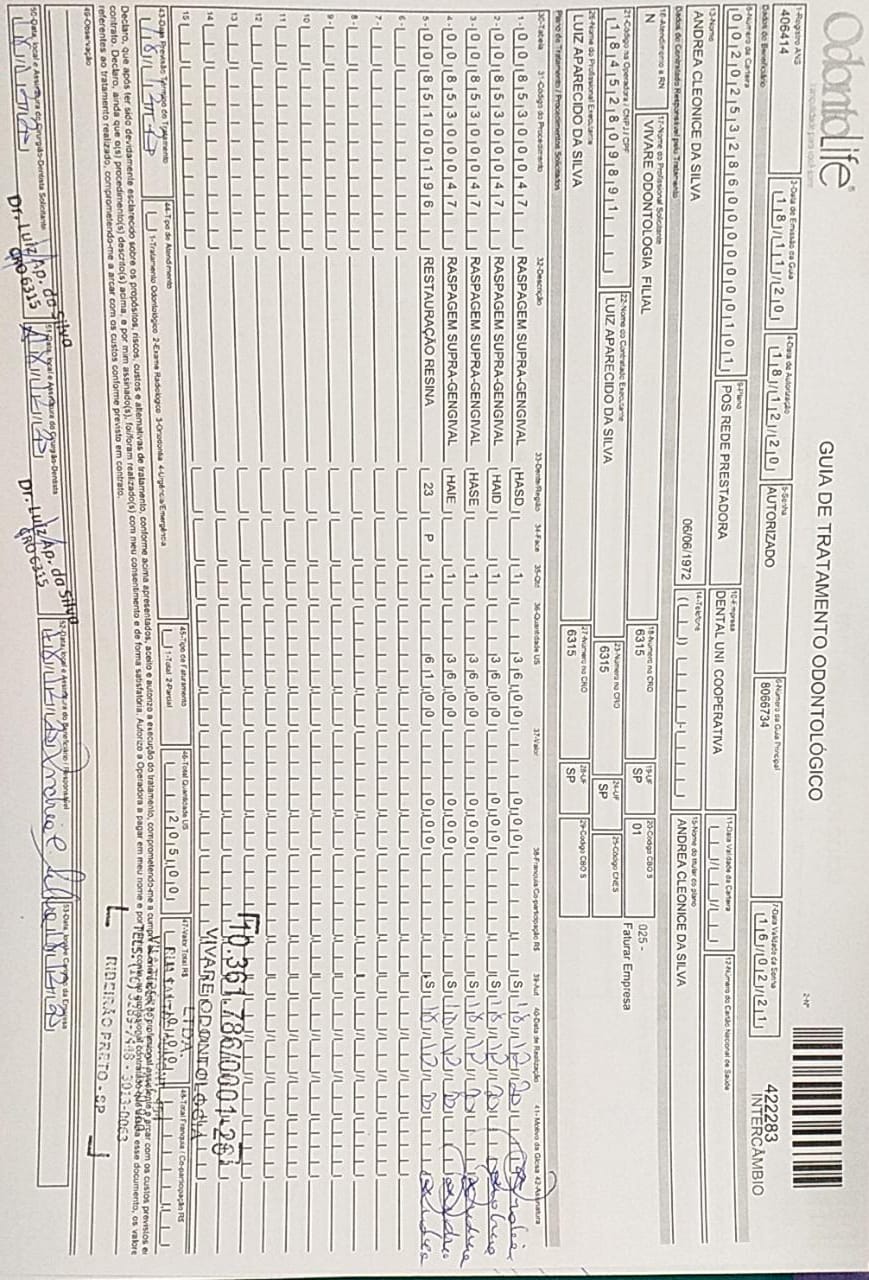 OdontoLife®
GUIA DE TRATAMENTO ODONTOLÓGICO
2-Nº
422283
INTERCÂMBIO
1-Registro ANS
406414
3-Data de Emissão da Guia
18/11/20
4-Data de Autorização
18/12/20
5-Senha
AUTORIZADO
6-Número da Guia Principal
8066734
7-Data Validade da Senha
16/02/21
Dados do Beneficiário
8-Número da Carteira
00202532860000000101
9-Plano
POS REDE PRESTADORA
10-Empresa
DENTAL UNI COOPERATIVA
11-Data Validade da Carteira
12-Número do Cartão Nacional de Saúde
13-Nome
ANDREA CLEONICE DA SILVA
06/06/1972
14-Telefone
15-Nome do titular do plano
ANDREA CLEONICE DA SILVA
Dados do Contratado Responsável pelo Tratamento
16-Atendimento a RN
N
17-Nome do Profissional Solicitante
VIVARE ODONTOLOGIA FILIAL
18-Número no CRO
6315
19-UF
SP
20-Código CBO S
01
025 -
Faturar Empresa
21-Código na Operadora / CNPJ / CPF
18452809891
22-Nome do Contratado Executante
LUIZ APARECIDO DA SILVA
23-Número no CRO
6315
24-UF
SP
25-Código CNES
26-Nome do Profissional Executante
LUIZ APARECIDO DA SILVA
27-Número no CRO
6315
28-UF
SP
29-Código CBO S
Plano de Tratamento / Procedimentos Solicitados
30-Tabela 31-Código do Procedimento 32-Descrição 33-Dente/Região 34-Face 35-Qtd 36-Quantidade US 37-Valor 38-Franquia Co-participação R$ 39-Aut 40-Data de Realização 41-Motivo da Glosa 42-Assinatura
1- 00 85300047 RASPAGEM SUPRA-GENGIVAL HASD 1 36,00 0,00 S 18/12/20
2- 00 85300047 RASPAGEM SUPRA-GENGIVAL HAID 1 36,00 0,00 S 18/12/20
3- 00 85300047 RASPAGEM SUPRA-GENGIVAL HASE 1 36,00 0,00 S 18/12/20
4- 00 85300047 RASPAGEM SUPRA-GENGIVAL HAIE 1 36,00 0,00 S 18/12/20
5- 00 85100196 RESTAURAÇÃO RESINA 23 P 1 61,00 0,00 S 18/12/20
6-
7-
8-
9-
10
11
12
13
14
15
VIVARE ODONTOLOGIA
LTDA.
43-Data Previsão Término do Tratamento
18/12/20
44-Tipo de Atendimento
1-Tratamento Odontológico 2-Exame Radiológico 3-Ortodontia 4-Urgência/Emergência
45-Tipo de Faturamento
1-Total 2-Parcial
46-Total Quantidade US
205,00
47-Valor Total R$
48-Total Franquia / Co-participação R$
Declaro, que após ter sido devidamente esclarecido sobre os propósitos, riscos, custos e alternativas de tratamento, conforme acima apresentados, aceito e autorizo a execução do tratamento, comprometendo-me a cumprir
contrato. Declaro, ainda que o(s) procedimento(s) descrito(s) acima, e por mim assinado(s), foi/foram realizado(s) com meu consentimento e de forma satisfatória. Autorizo a Operadora a pagar em meu nome e por
referentes ao tratamento realizado, comprometendo-me a arcar com os custos conforme previsto em contrato.
RIBEIRÃO PRETO - SP
49-Observação
50-Data, local e Assinatura do Cirurgião-Dentista Solicitante
18/12/20
Dr. Luiz Ap. da Silva
CRO 6315
51-Data, local e Assinatura do Cirurgião-Dentista
18/12/20
Dr. Luiz Ap. da Silva
CRO 6315
52-Data, local e Assinatura do Beneficiário / Responsável
18/12/20
53-Data, local e Carimbo da Empresa
18/12/20